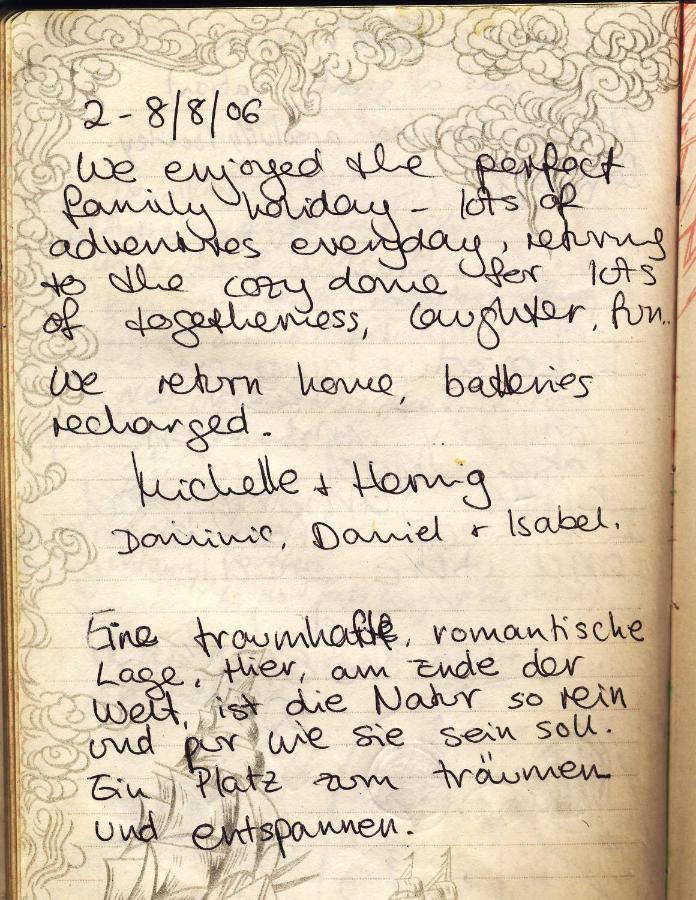 2-8/8/06
We enjoyed the perfect
family holiday - lots of
adventures everyday, returning
to the cozy dome for lots
of togetherness, laughter, fun..
We return home, batteries
recharged.
Michelle + Hennig
Dominic, Daniel + Isabel.
Eine traumhafte, romantische
Lage. Hier, am Ende der
Welt, ist die Natur so rein
und pur wie sie sein soll.
Ein Platz zum träumen
und entspannen.